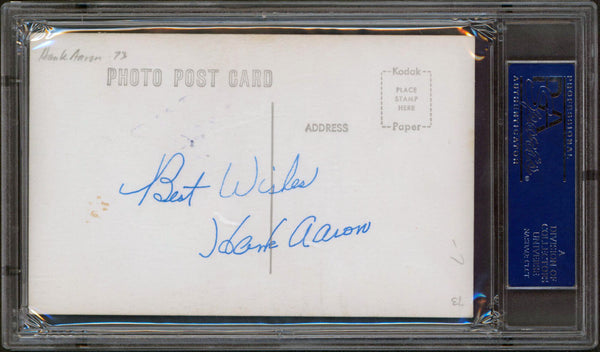 Hank Aaron 73
PHOTO POST CARD
Kodak
PLACE
STAMP
HERE
Paper
ADDRESS
Best Wishes
Hank Aaron
-7
73
PSA
PROFESSIONAL
AUTHENTICATOR
A
DIVISION OF
COLLECTORS
UNIVERSE